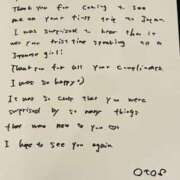 Thank you for coming to see
me on your first trip to Japan.
I was surprised to hear that it
was your first time speaking to a
Japanese girl!
Thank you for all your compliments.
I was so happy!)
It was so cute that you were
surprised by so many things
that were new to you
I hope to see you again